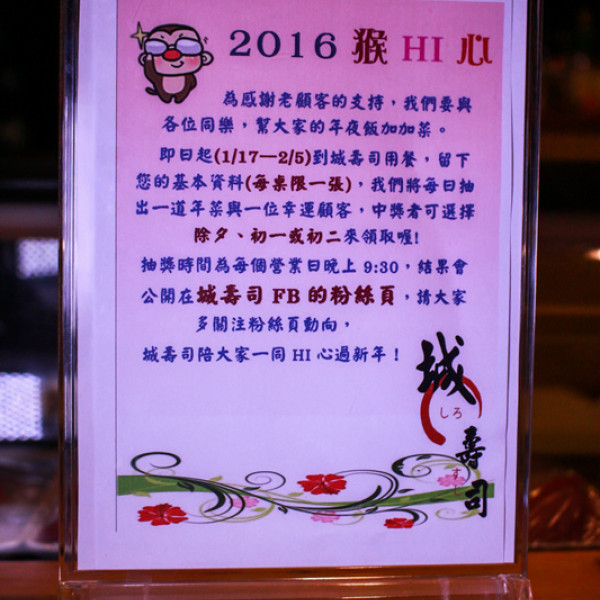 2016 猴 HI 心
為感謝老顧客的支持，我們要與
各位同樂，幫大家的年夜飯加加菜。
即日起(1/17—2/5)到城壽司用餐，留下
您的基本資料(每桌限一張)，我們將每日抽
出一道年菜與一位幸運顧客，中獎者可選擇
除夕、初一或初二來領取喔!
抽獎時間為每個營業日晚上 9:30，結果會
公開在城壽司 FB 的粉絲頁，請大家
多關注粉絲頁動向，
城壽司陪大家一同 HI 心過新年！
城
しろ
壽
すし
司